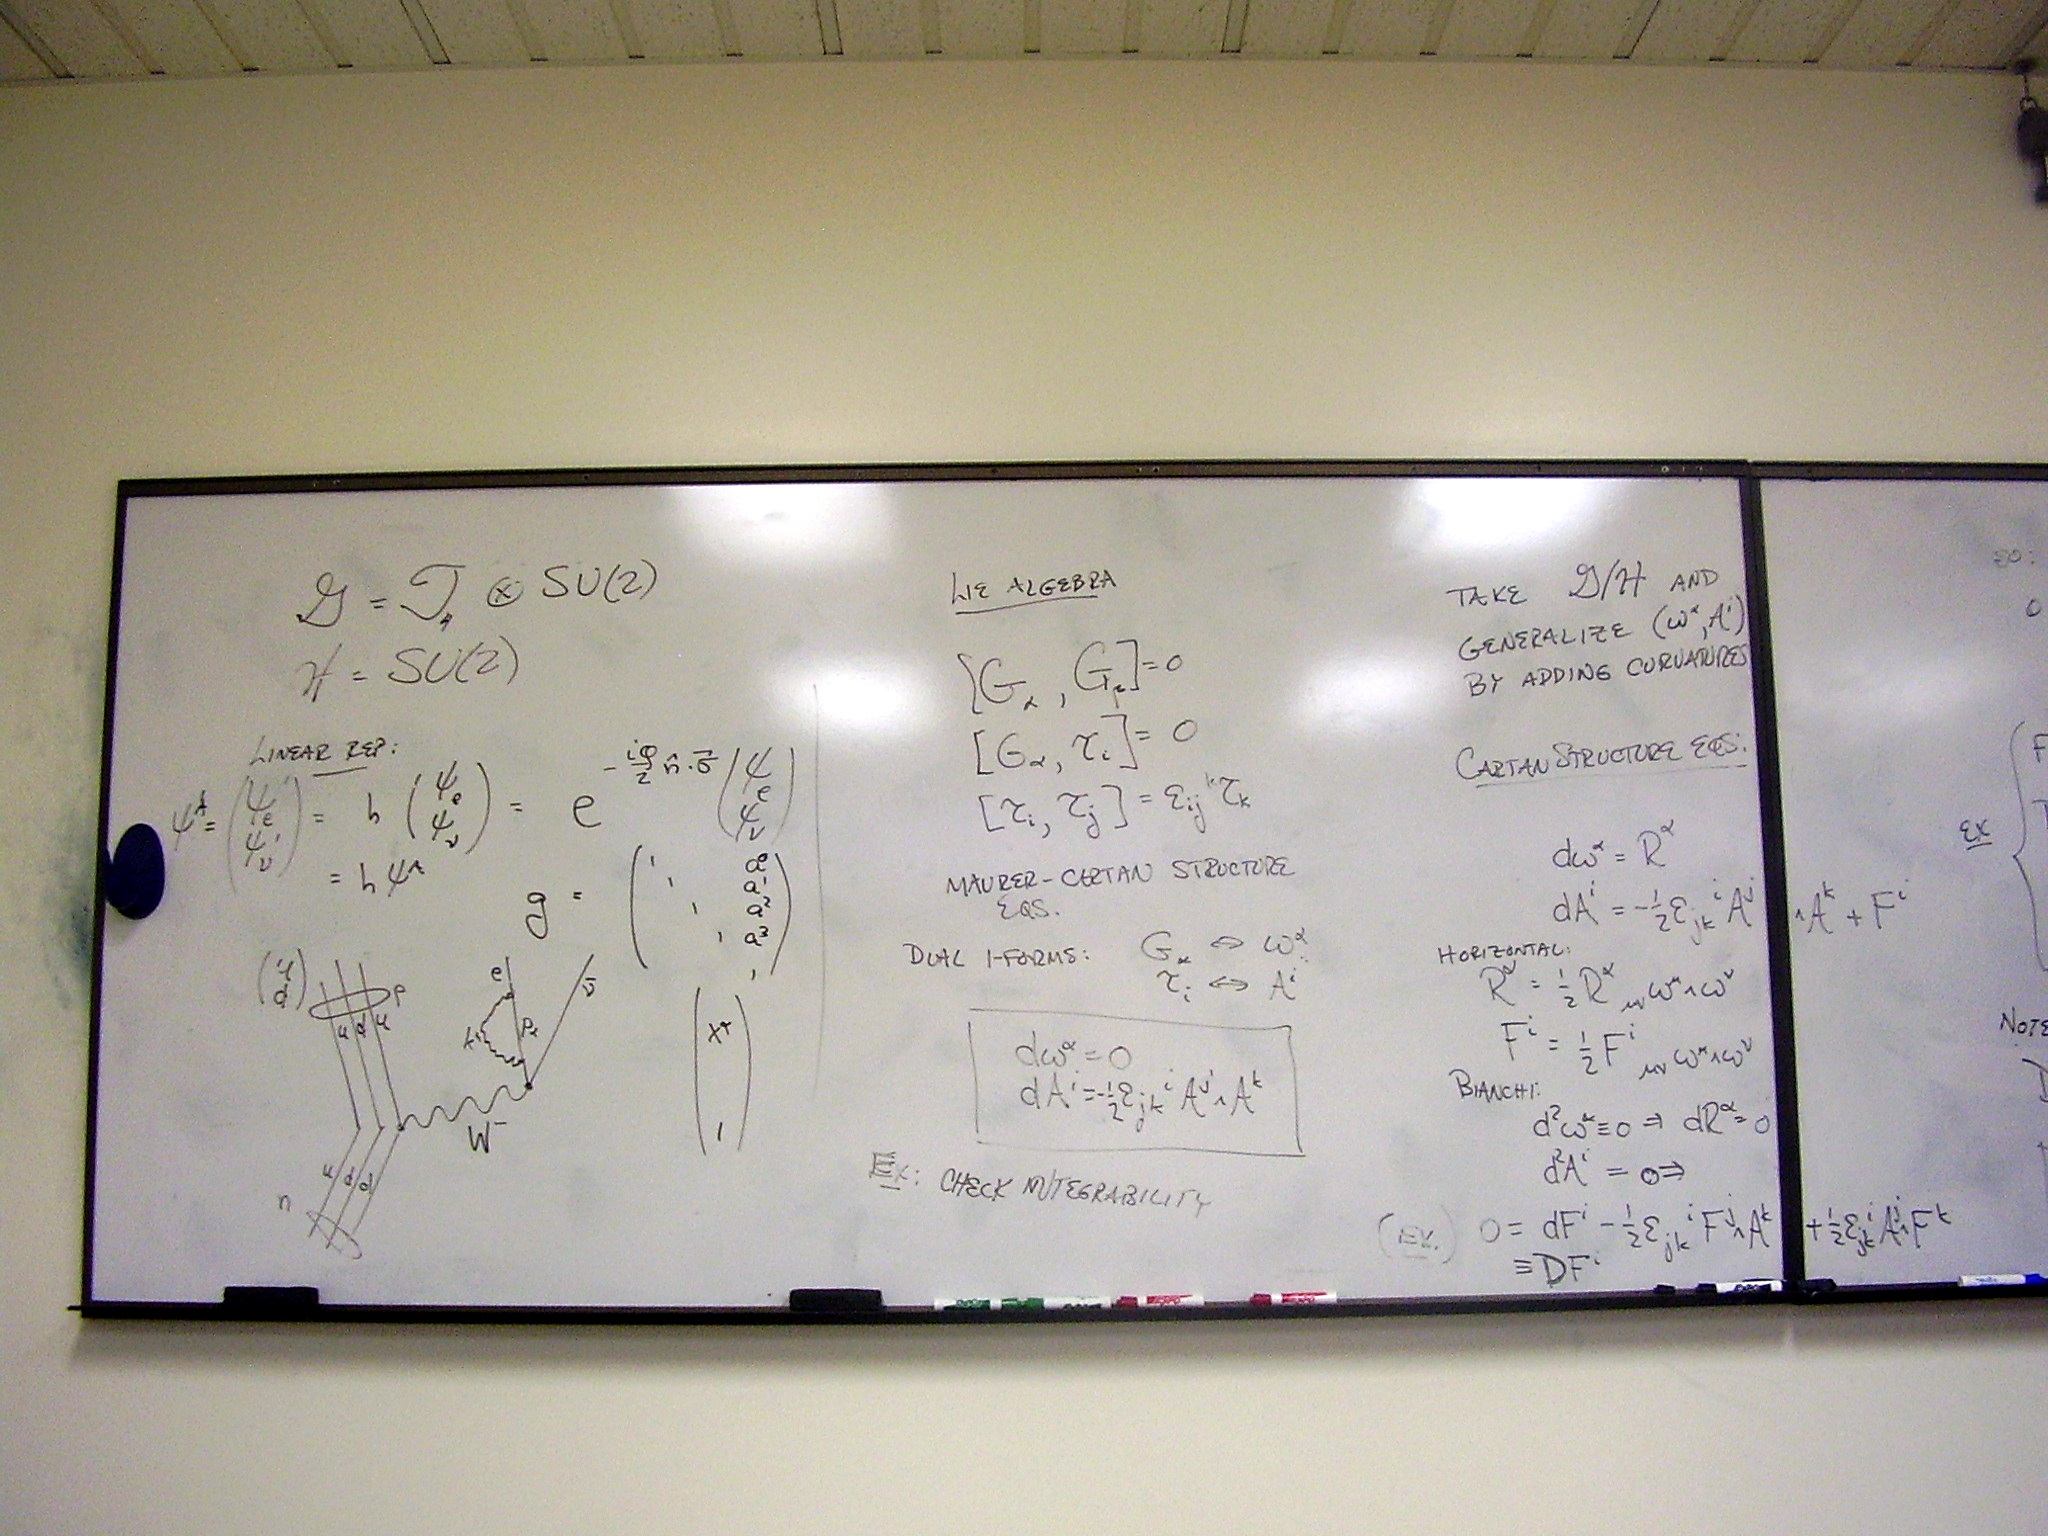 𝒢 = 𝒯₄ ⊗ SU(2)
ℋ = SU(2)
LINEAR REP:
ψ'ᴬ = (ψₑ' ψᵥ') = h (ψₑ ψᵥ) = e^(-iφ/2 n̂·σ⃗) (ψₑ ψᵥ)
= h ψᴬ
g = ( 1 1 1 1 1 a⁰ a¹ a² a³ )
(u d)
p
u d u
e
ν̄
k
W⁻
u d d
n
( xᵅ 1 )
LIE ALGEBRA
[G_α, G_β] = 0
[G_α, τ_i] = 0
[τ_i, τ_j] = ε_ij^k τ_k
MAURER-CARTAN STRUCTURE
EQS.
DUAL 1-FORMS: G_α ↔ ω^α
τ_i ↔ A^i
dω^α = 0
dA^i = -½ ε_jk^i A^j ∧ A^k
EX: CHECK INTEGRABILITY
TAKE 𝒢/ℋ AND
GENERALIZE (ω^α, A^i)
BY ADDING CURVATURES
CARTAN STRUCTURE EQS:
dω^α = R^α
dA^i = -½ ε_jk^i A^j ∧ A^k + F^i
HORIZONTAL:
R^α = ½ R^α_μν ω^μ ∧ ω^ν
F^i = ½ F^i_μν ω^μ ∧ ω^ν
BIANCHI:
d²ω^α ≡ 0 ⇒ dR^α = 0
d²A^i = 0 ⇒
(EX.) 0 = dF^i - ½ ε_jk^i F^j ∧ A^k + ½ ε_jk^i A^j ∧ F^k
≡ DF^i
SO:
0
EX {
F
NOTE
D